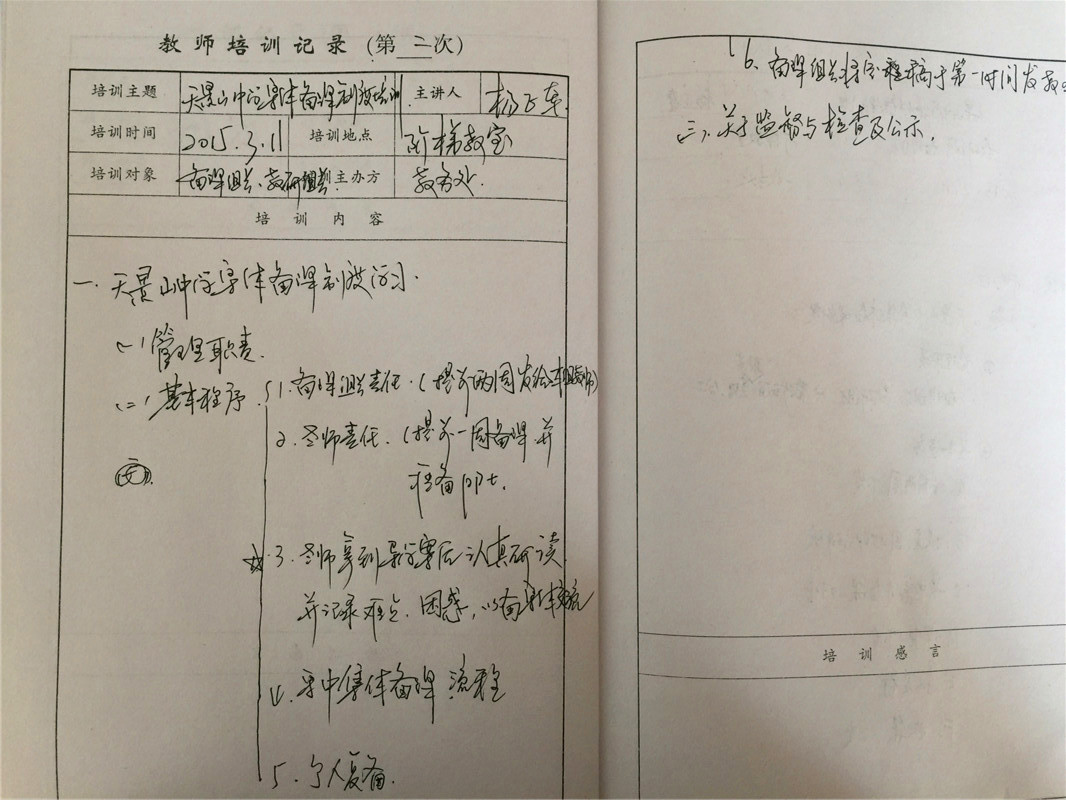 教师培训记录（第 二 次）
培训主题 天景山中学集体备课制度培训 主讲人 杨正
培训时间 2015.3.11 培训地点 阶梯教室
培训对象 备课组长、教研组长 主办方 教务处.
培训内容
一. 天景山中学集体备课制度学习.
(一) 管理职责.
(二) 基本程序. 1. 备课组长责任.(提前两周发给本组教师)
2. 老师责任.(提前一周备课并
3. 老师拿到导学案后认真研读
并记录难点、困惑, 以备集体交流
4. 集中集体备课流程
5. 个人复备.
6. 备课组长将定稿稿于第一时间发教
三、关于监督与检查及公示.
培训感言